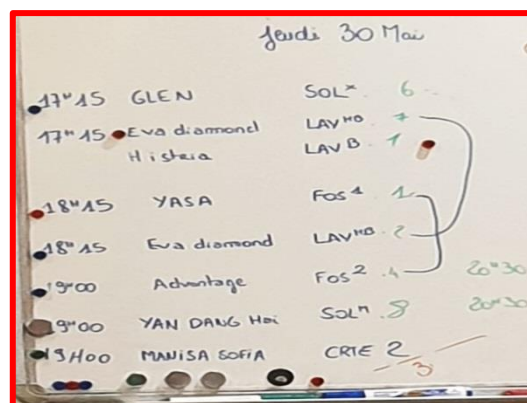 Jeudi 30 Mai
17H15 GLEN SOLx 6
17H15 Eva diamond LAVMD 7
Histria LAVB 1
18H15 YASA FOS1 1
18H15 Eva diamond LAVMD 2
19H00 Advantage FOS2 4 20H30
19H00 YAN DANG Hai SOLM 8 20H30
19H00 MANiSA SOFiA CRTE 2 3